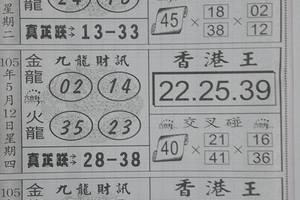 星期二
真正跌→13-33
45
18 02
38 12
105年5月12日星期四
金龍
火龍
九龍財訊
02 14
35 23
真正跌→28-38
香港王
22.25.39
交叉碰
40
21 16
41 36
105
金
九龍財訊
香港王